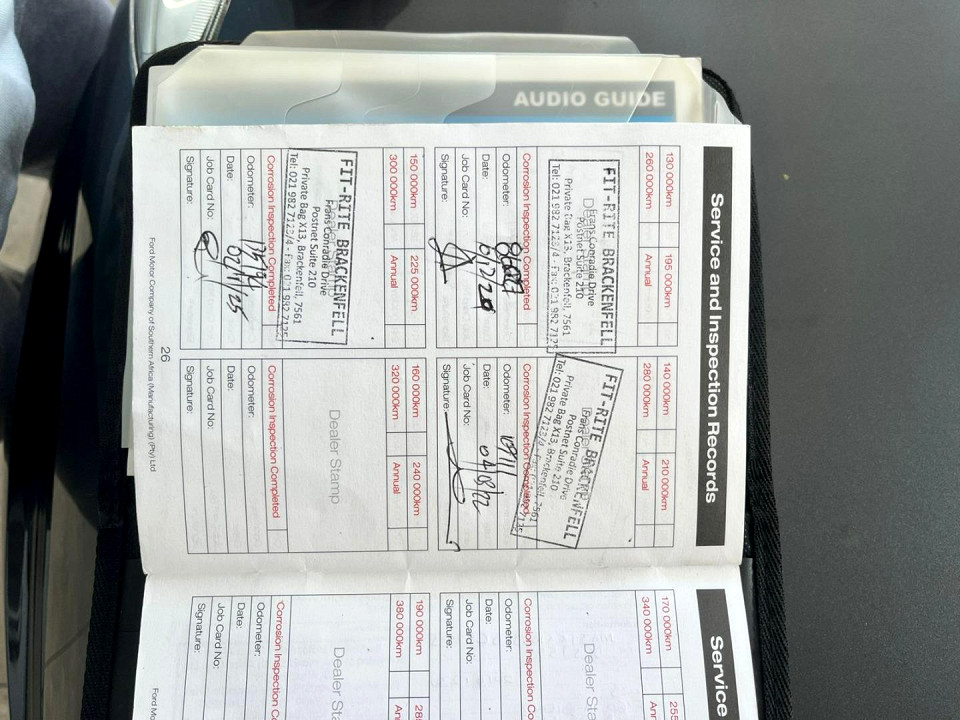 AUDIO GUIDE
Service and Inspection Records
130 000km 195 000km
260 000km Annual
FIT-RITE BRACKENFELL
Frans Conradie Drive
Postnet Suite 210
Private Bag X13, Brackenfell, 7561
Tel: 021 982 7123/4 - Fax: 021 982 7125
Corrosion Inspection Completed
Odometer:
Date:
Job Card No:
Signature:
140 000km 210 000km
280 000km Annual
FIT-RITE BRACKENFELL
Frans Conradie Drive
Postnet Suite 210
Private Bag X13, Brackenfell, 7561
Tel: 021 982 7123/4 - Fax: 021 982 7125
Corrosion Inspection Completed
Odometer: 109111
Date: 04/08/22
Job Card No:
Signature:
150 000km 225 000km
300 000km Annual
FIT-RITE BRACKENFELL
Frans Conradie Drive
Postnet Suite 210
Private Bag X13, Brackenfell, 7561
Tel: 021 982 7123/4 - Fax: 021 982 7125
Corrosion Inspection Completed
Odometer:
Date:
Job Card No:
Signature:
160 000km 240 000km
320 000km Annual
Dealer Stamp
Corrosion Inspection Completed
Odometer:
Date:
Job Card No:
Signature:
26
Ford Motor Company of Southern Africa (Manufacturing) (Pty) Ltd
Service
170 000km 255
340 000km
Dealer
Corrosion Inspection
Odometer:
Date:
Job Card No:
Signature:
190 000km
380 000km
Dealer
Corrosion Inspection
Odometer:
Date:
Job Card No:
Signature:
Ford